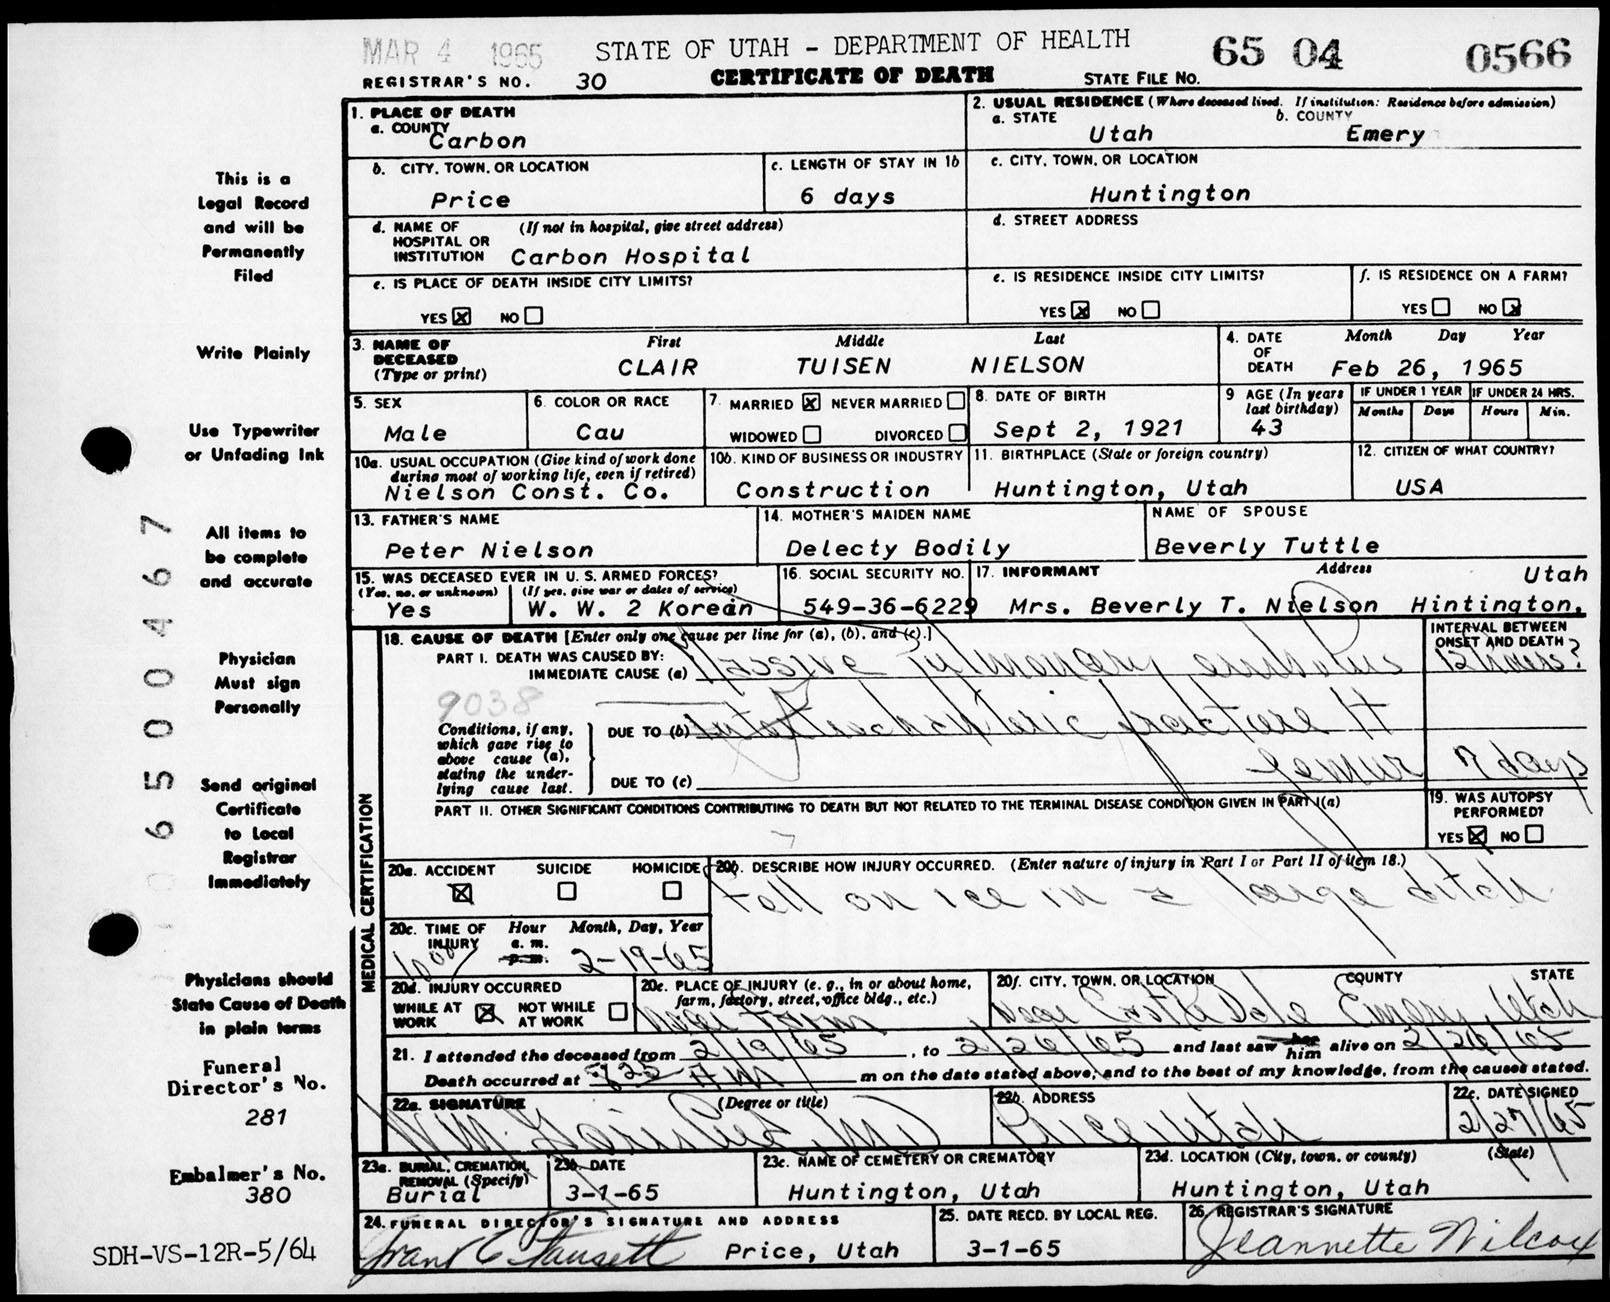 MAR 4 1965 STATE OF UTAH - DEPARTMENT OF HEALTH 65 04 0566
REGISTRAR'S NO. 30 CERTIFICATE OF DEATH STATE FILE NO.
1. PLACE OF DEATH
a. COUNTY
Carbon
2. USUAL RESIDENCE (Where deceased lived. If institution: Residence before admission)
a. STATE b. COUNTY
Utah Emery
b. CITY, TOWN, OR LOCATION
Price
c. LENGTH OF STAY IN 1b
6 days
c. CITY, TOWN, OR LOCATION
Huntington
d. NAME OF (If not in hospital, give street address)
HOSPITAL OR
INSTITUTION Carbon Hospital
d. STREET ADDRESS
e. IS PLACE OF DEATH INSIDE CITY LIMITS?
YES X NO
e. IS RESIDENCE INSIDE CITY LIMITS?
YES X NO
f. IS RESIDENCE ON A FARM?
YES NO X
3. NAME OF DECEASED (Type or print)
First Middle Last
CLAIR TUISEN NIELSON
4. DATE OF DEATH
Month Day Year
Feb 26, 1965
5. SEX
Male
6. COLOR OR RACE
Cau
7. MARRIED X NEVER MARRIED
WIDOWED DIVORCED
8. DATE OF BIRTH
Sept 2, 1921
9 AGE (In years last birthday)
43
IF UNDER 1 YEAR IF UNDER 24 HRS.
Months Days Hours Min.
10a. USUAL OCCUPATION (Give kind of work done
during most of working life, even if retired)
Nielson Const. Co.
10b. KIND OF BUSINESS OR INDUSTRY
Construction
11. BIRTHPLACE (State or foreign country)
Huntington, Utah
12. CITIZEN OF WHAT COUNTRY?
USA
13. FATHER'S NAME
Peter Nielson
14. MOTHER'S MAIDEN NAME
Delecty Bodily
NAME OF SPOUSE
Beverly Tuttle
15. WAS DECEASED EVER IN U.S. ARMED FORCES?
(Yes, no, or unknown) (If yes, give war or dates of service)
Yes W. W. 2 Korean
16. SOCIAL SECURITY NO.
549-36-6229
17. INFORMANT Address
Utah
Mrs. Beverly T. Nielson Hintington,
MEDICAL CERTIFICATION
18. CAUSE OF DEATH [Enter only one cause per line for (a), (b), and (c).]
PART I. DEATH WAS CAUSED BY:
IMMEDIATE CAUSE (a) Massive Pulmonary embolus
INTERVAL BETWEEN
ONSET AND DEATH
9038
Conditions, if any,
which gave rise to
above cause (a),
stating the under-
lying cause last.
DUE TO (b) Intertrochanteric fracture lt
femur 7 days
DUE TO (c)
PART II. OTHER SIGNIFICANT CONDITIONS CONTRIBUTING TO DEATH BUT NOT RELATED TO THE TERMINAL DISEASE CONDITION GIVEN IN PART I(a)
19. WAS AUTOPSY
PERFORMED?
YES X NO
20a. ACCIDENT SUICIDE HOMICIDE
X
20b. DESCRIBE HOW INJURY OCCURRED. (Enter nature of injury in Part I or Part II of item 18.)
Fell on ice in a large ditch
20c. TIME OF INJURY
Hour Month, Day, Year
a. m.
p. m.
10 00 2-19-65
20d. INJURY OCCURRED
WHILE AT WORK X NOT WHILE AT WORK
20e. PLACE OF INJURY (e. g., in or about home,
farm, factory, street, office bldg., etc.)
near Farm
20f. CITY, TOWN, OR LOCATION COUNTY STATE
near Castle Dale Emery Utah
21. I attended the deceased from 2/19/65, to 2/26/65 and last saw her him alive on 2/26/65
Death occurred at 825 AM m on the date stated above; and to the best of my knowledge, from the causes stated.
22a. SIGNATURE (Degree or title)
Wm. MD
22b. ADDRESS
Price, Utah
22c. DATE SIGNED
2/27/65
23a. BURIAL, CREMATION,
REMOVAL (Specify)
Burial
23b. DATE
3-1-65
23c. NAME OF CEMETERY OR CREMATORY
Huntington, Utah
23d. LOCATION (City, town, or county) (State)
Huntington, Utah
24. FUNERAL DIRECTOR'S SIGNATURE AND ADDRESS
Frank C Fausett Price, Utah
25. DATE RECD. BY LOCAL REG.
3-1-65
26. REGISTRAR'S SIGNATURE
Jeannette Wilcox
This is a
Legal Record
and will be
Permanently
Filed
Write Plainly
Use Typewriter
or Unfading Ink
All items to
be complete
and accurate
Physician
Must sign
Personally
Send original
Certificate
to Local
Registrar
Immediately
Physicians should
State Cause of Death
in plain terms
Funeral
Director's No.
281
Embalmer's No.
380
SDH-VS-12R-5/64
06500467